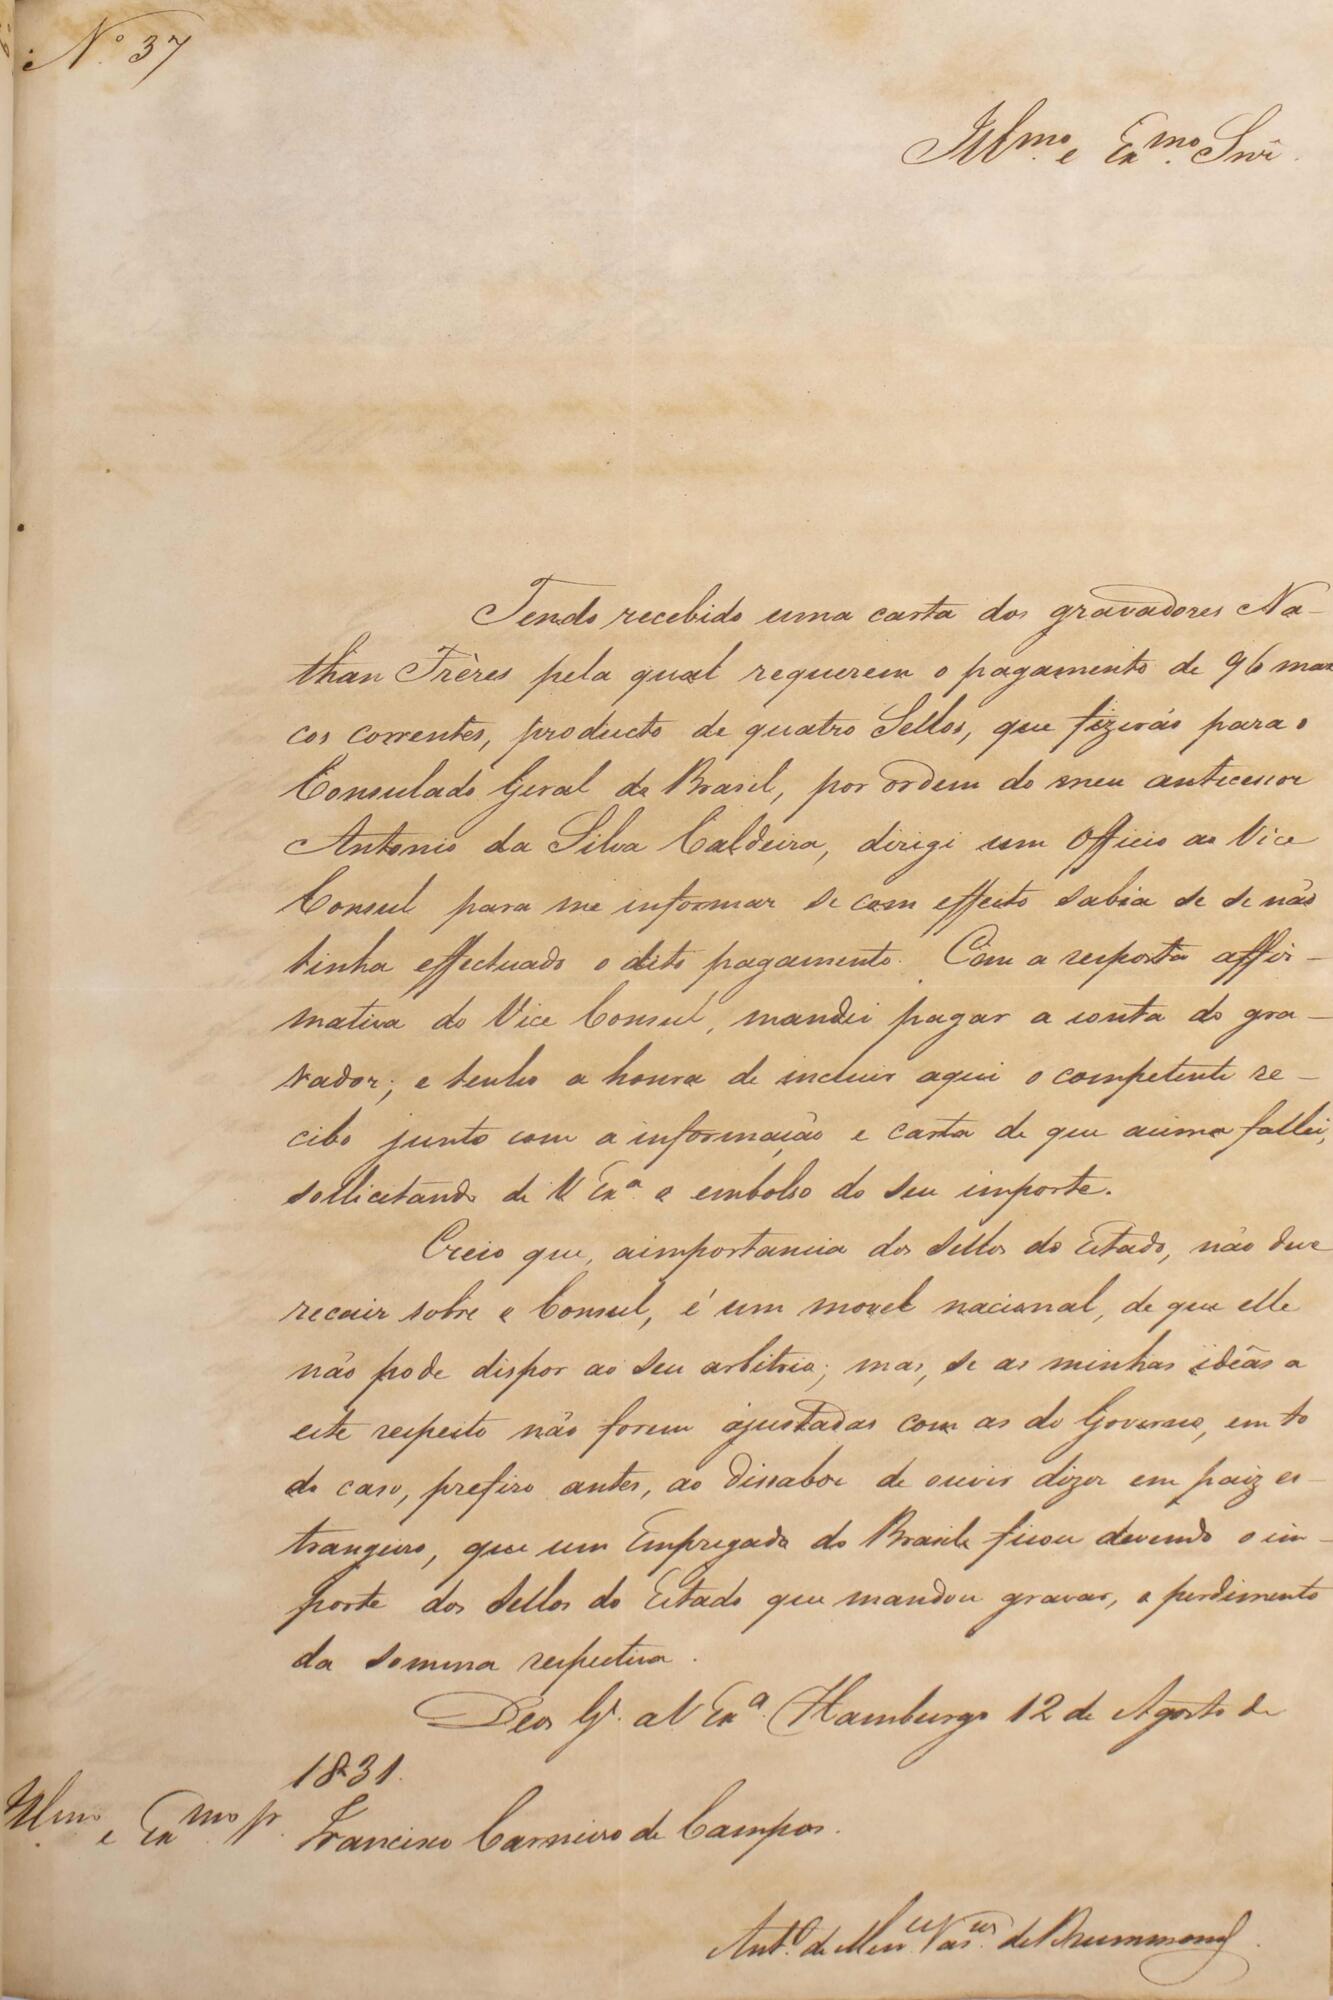 Nº 37
Illmo. e Exmo. Snr.
Tendo recebido uma carta dos gravadores Na-
than Frères pela qual requerem o pagamento de 96 mar
cos correntes, producto de quatro Sellos, que fizerão para o
Consulado Geral do Brasil, por ordem do meu antecessor
Antonio da Silva Caldeira, dirigi um Officio ao Vice
Consul para me informar se com effeito sabia se se não
tinha effectuado o dito pagamento. Com a resposta affir-
mativa do Vice Consul, mandei pagar a conta do gra-
vador; e tenho a honra de incluir aqui o competente re-
cibo junto com a informação e carta de que acima fallei,
sollicitando de V. Exa. o embolso do seu importe.
Creio que, a importancia dos Sellos do Estado, não deve
recair sobre o Consul, é um movel nacional, de que elle
não pode dispor ao seu arbitrio; mas, se as minhas idêas a
este respeito não forem ajustadas com as do Governo, em to
do caso, prefiro antes, ao dissabor de ouvir dizer em paiz es-
trangeiro, que um Empregado do Brasil ficou devendo o im-
porte dos Sellos do Estado que mandou gravar, o perdimento
da somma respectiva.
Deos Ge. a V Exa. Hamburgo 12 de Agosto de
1831.
Illmo. e Exmo. Sr. Francisco Carneiro de Campos.
Anto. de Menes. Vascos. de Drummond.